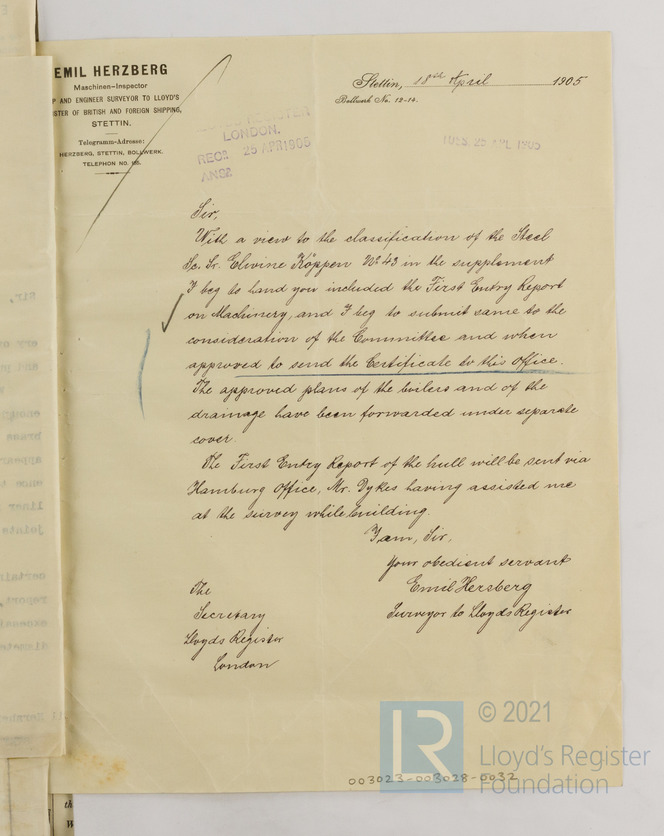 EMIL HERZBERG
Maschinen-Inspector
P AND ENGINEER SURVEYOR TO LLOYD'S
ISTER OF BRITISH AND FOREIGN SHIPPING,
STETTIN.
Telegramm-Adresse:
HERZBERG, STETTIN, BOLLWERK.
TELEPHON NO.
Stettin, 18th April 1905
Bollwerk No. 12-14.
LONDON.
REC^D 25 APR 1905
ANS^D
TUES. 25 APL 1905
Sir,
With a view to the classification of the Steel
Sc. Sr. Elwine Köppen No 43 in the supplement
I beg to hand you included the First Entry Report
on Machinery, and I beg to submit same to the
consideration of the Committee and when
approved to send the Certificate to this Office.
The approved plans of the boilers and of the
drainage have been forwarded under separate
cover.
The First Entry Report of the hull will be sent via
Hamburg Office, Mr. Dykes having assisted me
at the survey while building.
I am, Sir,
Your obedient servant
Emil Herzberg
Surveyor to Lloyds Register
The
Secretary
Lloyds Register
London
003023-003028-0032
LR
© 2021
Lloyd's Register
Foundation